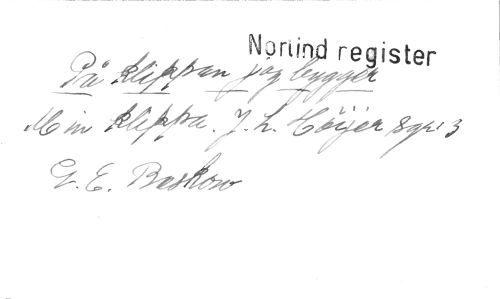 Norlind register
På klippan jag bygger
Min klippa. J. L. Höijer
G. E. Beskow